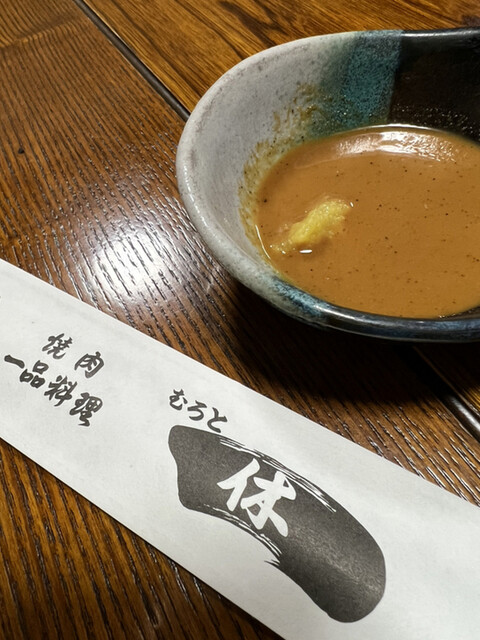 焼肉
一品料理
むろと
休